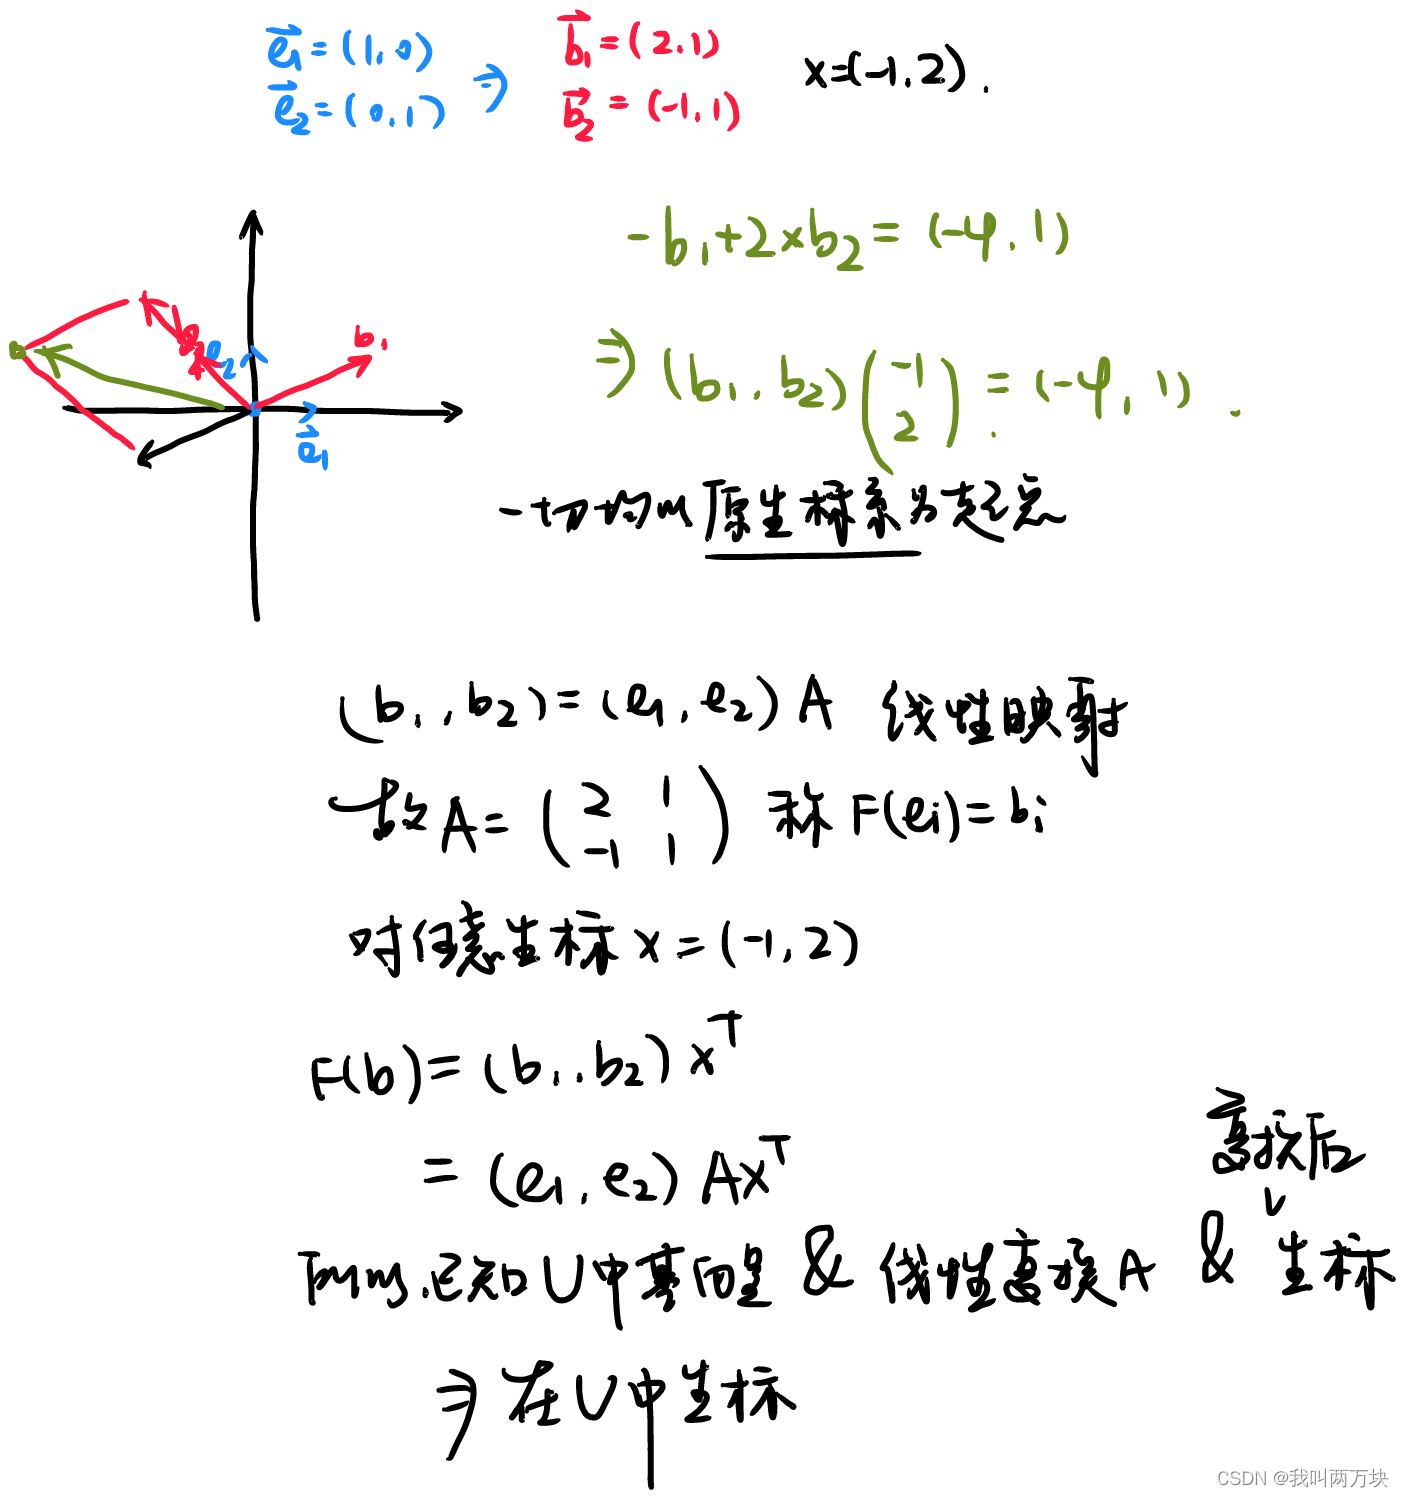 e₁=(1,0) ⇒ b₁=(2,1) x=(-1,2).
e₂=(0,1) b₂=(-1,1)
-b₁+2×b₂=(-4,1)
⇒(b₁,b₂)(-1 2)=(-4,1).
b₁
b₂
e₂
e₁
一切均以原坐标系为起点
(b₁,b₂)=(e₁,e₂)A 线性映射
故A=(2 1 -1 1) 称F(ei)=bi
对任意坐标x=(-1,2)
F(b)=(b₁,b₂)xᵀ
=(e₁,e₂)Axᵀ
变换后
所以,已知U中基向量&线性变换A&坐标
⇒在U中坐标
CSDN @我叫两万块